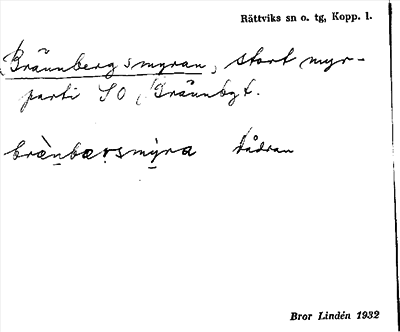 Rättviks sn o. tg, Kopp. l.
Brännbergsmyran, stort myr-
parti SO
brànbærsmỳra Dådran
Bror Lindén 1932